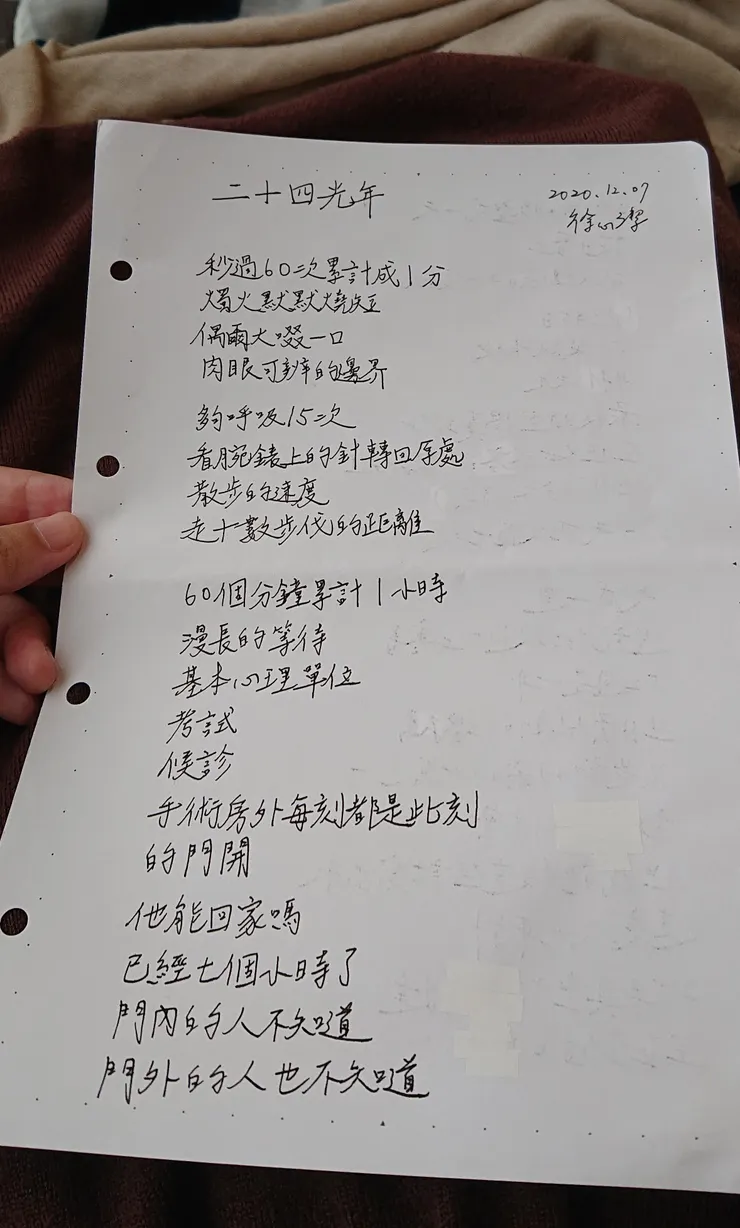 二十四光年
2020.12.07
徐心潔
秒過60次累計成1分
燭火默默燒短
偶爾大啜一口
肉眼可辨的邊界
夠呼吸15次
看腕錶上的針轉回原處
散步的速度
走十數步伐的距離
60個分鐘累計1小時
漫長的等待
基本心理單位
考試
候診
手術房外每刻都是此刻
的門開
他能回家嗎
已經七個小時了
門內的人不知道
門外的人也不知道